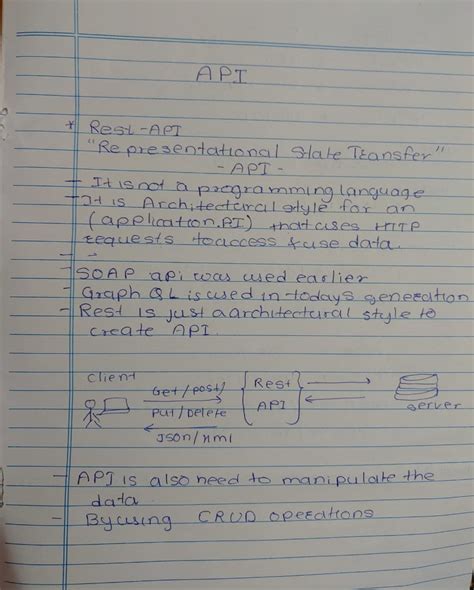 API
* Rest-API
"Representational State Transfer"
- API -
- It is not a programming language
- It is Architectural style for an
(application, PI) that uses HTTP
requests to access & use data.
- -
- SOAP api was used earlier
- Graph QL is used in todays generation
- Rest is just a architectural style to
create API.
client
Get/post/
Put/Delete
Json/xml
Rest
API
server
- API is also need to manipulate the
data
- By using CRUD operations